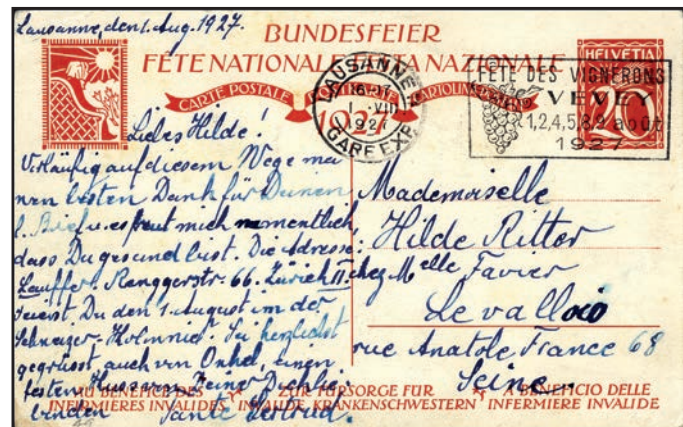 Lausanne, den 1. Aug. 1927.
BUNDESFEIER
FÊTE NATIONALE FESTA NAZIONALE
CARTE POSTALE CARTOLINA
1927
LAUSANNE
1 . VIII
1927
GARE EXP.
FÊTE DES VIGNERONS
VEVEY
1,2,4,5,8,9 août
1927
HELVETIA
20
Liebe Hilde!
Vorläufig auf diesem Wege mei
nen besten Dank für Deinen
l. Brief u. es freut mich namentlich,
dass Du gesund bist. Die Adresse:
Lauffer. Ranggerstr. 66. Zürich II.
Feierst Du den 1. August in der
Schweizer-Kolonnie? Sei herzlichst
gegrüsst, auch von Onkel, einen
festen Kuss von Deiner Dich lie
benden Tante Gertrud.
Mademoiselle
Hilde Ritter
chez Melle Favier
Levallois
rue Anatole France 68
Seine
AU BENEFICE DES INFIRMIÈRES INVALIDES
ZUR FÜRSORGE FÜR INVALIDE KRANKENSCHWESTERN
A BENEFICIO DELLE INFERMIERE INVALIDE